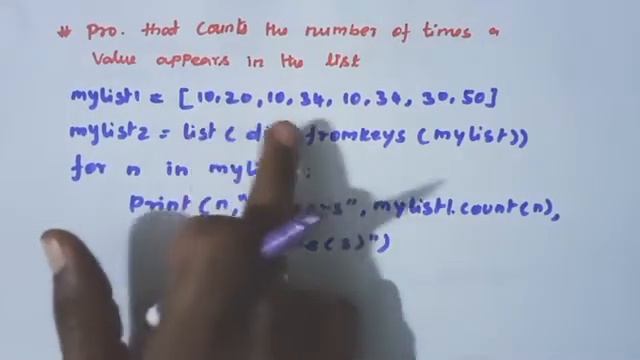 # Pro. that Counts the number of times a
Value appears in the list
mylist1 = [10,20,10,34,10,34,30,50]
mylist2 = list( fromkeys (mylist))
for n in :
Print (n," ", mylist1.count(n),
(s)")